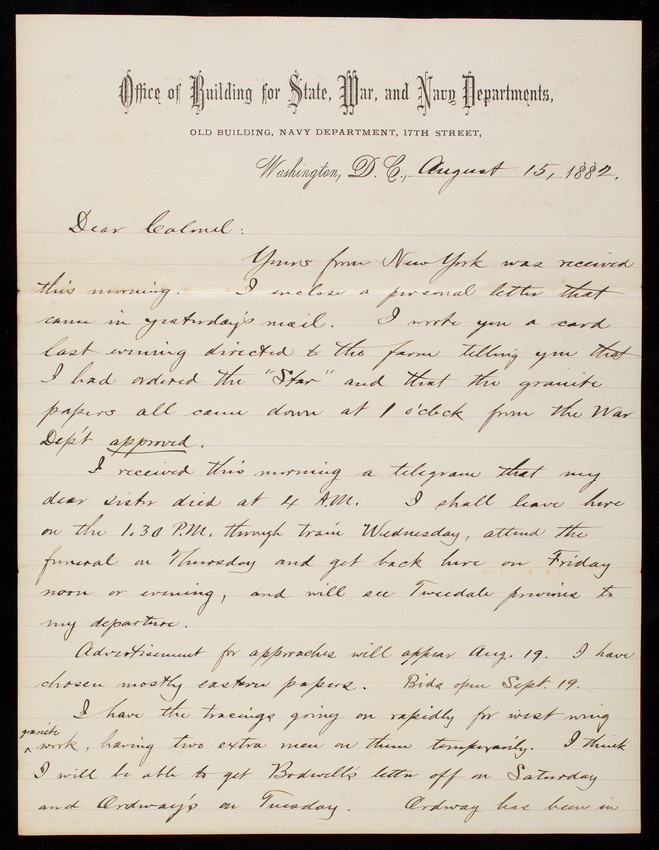 Office of Building for State, War, and Navy Departments,
OLD BUILDING, NAVY DEPARTMENT, 17TH STREET,
Washington, D. C., August 15, 1882.
Dear Colonel:
Yours from New York was received
this morning. I enclose a personal letter that
came in yesterday's mail. I wrote you a card
last evening directed to the farm telling you that
I had ordered the "Star" and that the granite
papers all came down at 1 o'clock from the War
Dep't approved.
I received this morning a telegram that my
dear sister died at 4 A.M. I shall leave here
on the 1.30 P.M. through train Wednesday, attend the
funeral on Thursday and get back here on Friday
noon or evening, and will see Tweedale previous to
my departure.
Advertisement for approaches will appear Aug. 19. I have
chosen mostly eastern papers. Bids open Sept. 19.
I have the tracings going on rapidly for west wing
granite
^ work, having two extra men on them temporarily. I think
I will be able to get Bodwell's letter off on Saturday
and Ordway's on Tuesday. Ordway has been in